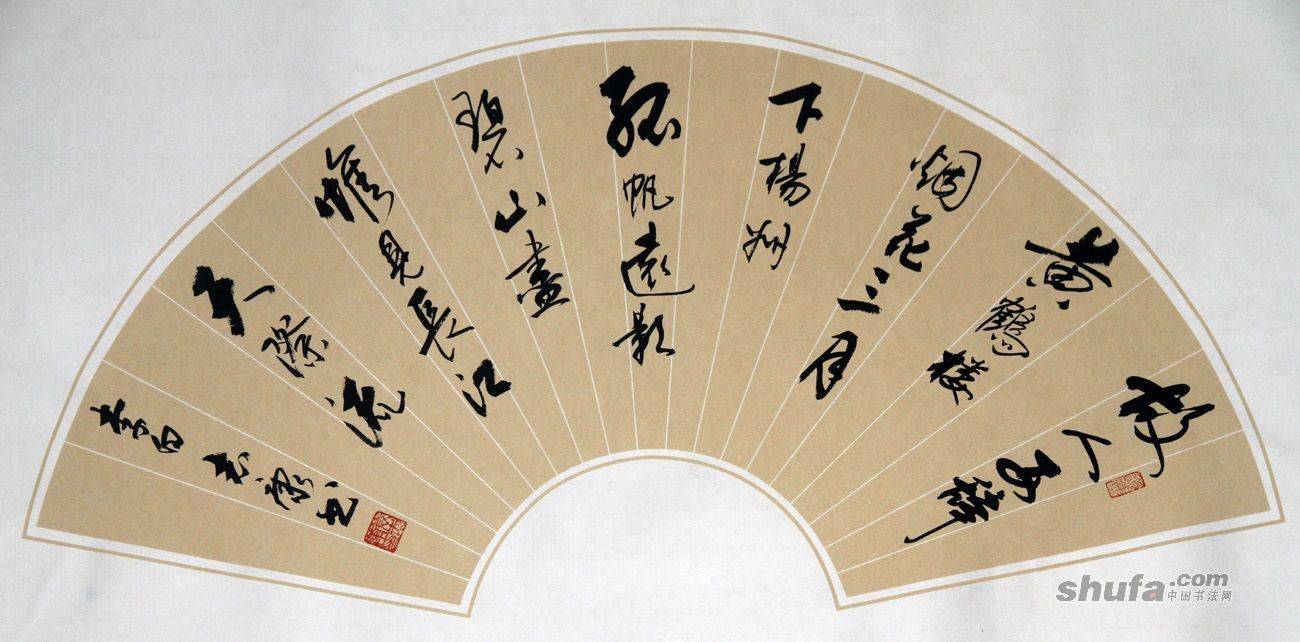 故人西辞
黄鶴楼
烟花三月
下揚州
孤帆遠影
碧山盡
惟見長江
天際流
李白 书
shufa.com
中国书法网